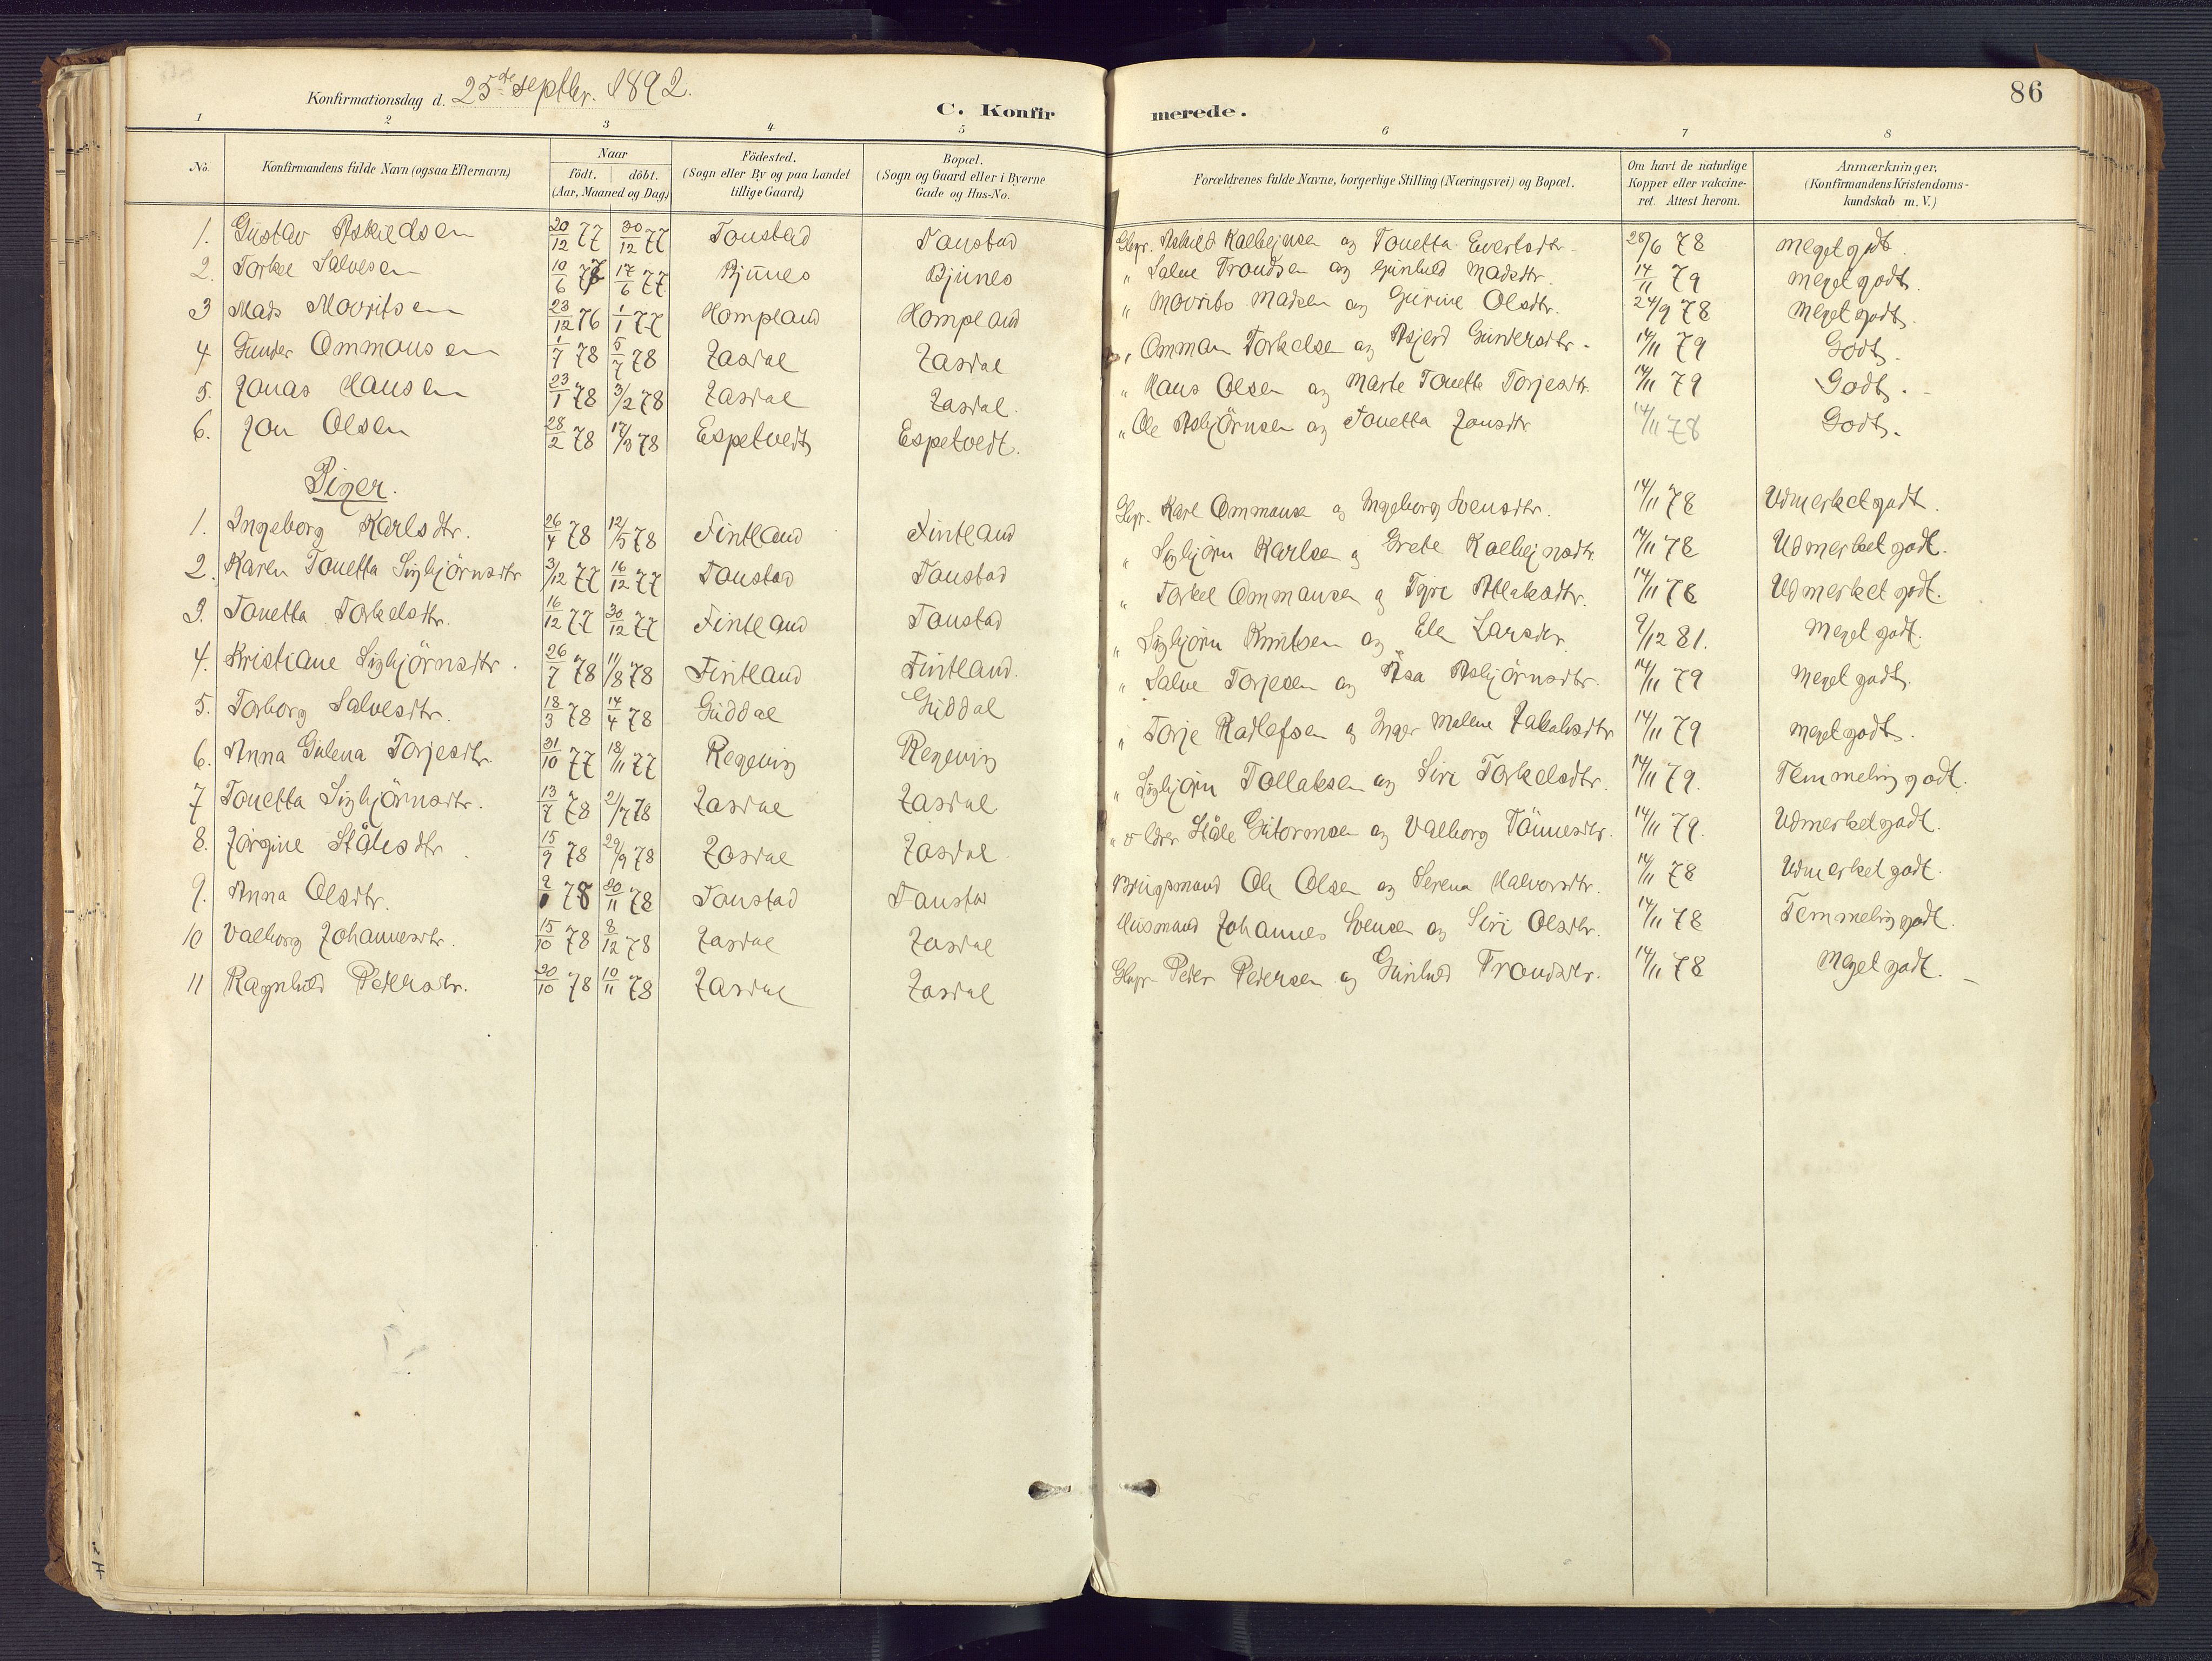 86
Konfirmationsdag d. 25de septbr. 1892.
C. Konfirmerede.
1 2 3 4 5 6 7 8
No. Konfirmandens fulde Navn (ogsaa Efternavn) Naar födt. döbt. (Aar, Maaned og Dag) Födested. (Sogn eller By og paa Landet tillige Gaard) Bopæl. (Sogn og Gaard eller i Byerne Gade og Hus-No. Forældrenes fulde Navne, borgerlige Stilling (Næringsvei) og Bopæl. Om havt de naturlige Kopper eller vakcineret. Attest herom. Anmærkninger. (Konfirmandens Kristendomskundskab m. V.)
1. Gustav Askildsen 20/12 77 30/12 77 Tonstad Tonstad Gbgr. Askild Kolbejnsen og Tonetta Evertsdtr. 28/6 78 meget godt.
2. Torkel Salvesen 10/6 77 17/6 77 Bjunes Bjunes " Salve Trondsen og Gunhild Madsdtr. 14/11 79 meget godt.
3 Mads Mouritsen 23/12 76 1/1 77 Hompland Hompland " Mourits Madsen og Gurine Olsdtr. 24/9 78 Meget godt.
4. Gunder Ommonsen 1/7 78 5/7 78 Josdal Josdal " Ommon Torkelsen og Asjerd Gundersdtr. 14/11 79 Godt.
5. Jonas Hansen 23/1 78 3/2 78 Josdal Josdal. " Hans Olsen og Marte Tonette Torjesdtr. 14/11 79 Godt.
6. Jon Olsen 28/2 78 17/3 78 Espetvedt Espetvedt. " Ole Asbjörnsen og Tonetta Jonsdtr 14/11 78 Godt.
Piger.
1. Ingeborg Karlsdtr. 26/4 78 12/5 78 Fintland Fintland Gbgr. Karl Ommonsen og Ingeborg Svensdtr. 14/11 78 Udmerket godt.
2. Karen Tonetta Sigbjörnsdtr 3/12 77 16/12 77 Tonstad Tonstad " Sigbjörn Karlsen og Grete Kolbejnsdtr. 14/11 78 Udmerket godt.
3. Tonetta Torkelsdtr. 16/12 77 30/12 77 Fintland Tonstad " Torkel Ommonsen og Tyri Atlaksdtr. 14/11 78 Udmerket godt.
4. Kristiane Sigbjörnsdtr. 26/7 78 11/8 78 Fintland Fintland. " Sigbjörn Knutsen og Eli Larsdtr. 9/12 81. Meget godt.
5. Torborg Salvesdtr. 18/3 78 14/4 78 Guddal Guddal " Salve Torjesen og Åsa Asbjörnsdtr. 14/11 79 Meget godt.
6. Anna Gulena Torjesdtr. 31/10 77 18/11 77 Regevig Regevig " Torje Radlefsen og Inger Malene Jakobsdtr 14/11 79 meget godt.
7 Tonetta Sigbjörnsdtr. 13/7 78 21/7 78 Josdal Josdal " Sigbjörn Tollaksen og Siri Torkelsdtr. 14/11 79. Temmelig godt.
8. Jørgine Ståtesdtr. 15/9 78 29/9 78 Josdal Josdal. " Ståle Gutormsen og Valborg Tönnesdtr. 14/11 79. Udmerket godt.
9. Anna Olsdtr. 78 20/11 78 Tonstad Tonstad Brugsmand Ole Olsen og Serena Halvorsdtr. 14/11 78 Udmerket godt.
10 Valborg Johannesdtr. 15/10 78 8/12 78 Josdal Josdal Husmand Johannes Svensen og Siri Olsdtr. 14/11 78 Temmelig godt.
11 Ragnhild Pedersdtr. 20/10 78 10/11 78 Josdal Josdal Gbgr. Peder Pedersen og Gunhild Trondsdtr. 14/11 78 Meget godt.